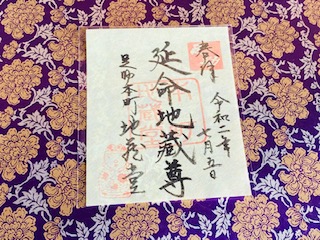 奉拝
令和二年
七月五日
延命地蔵尊
足助本町 地蔵堂